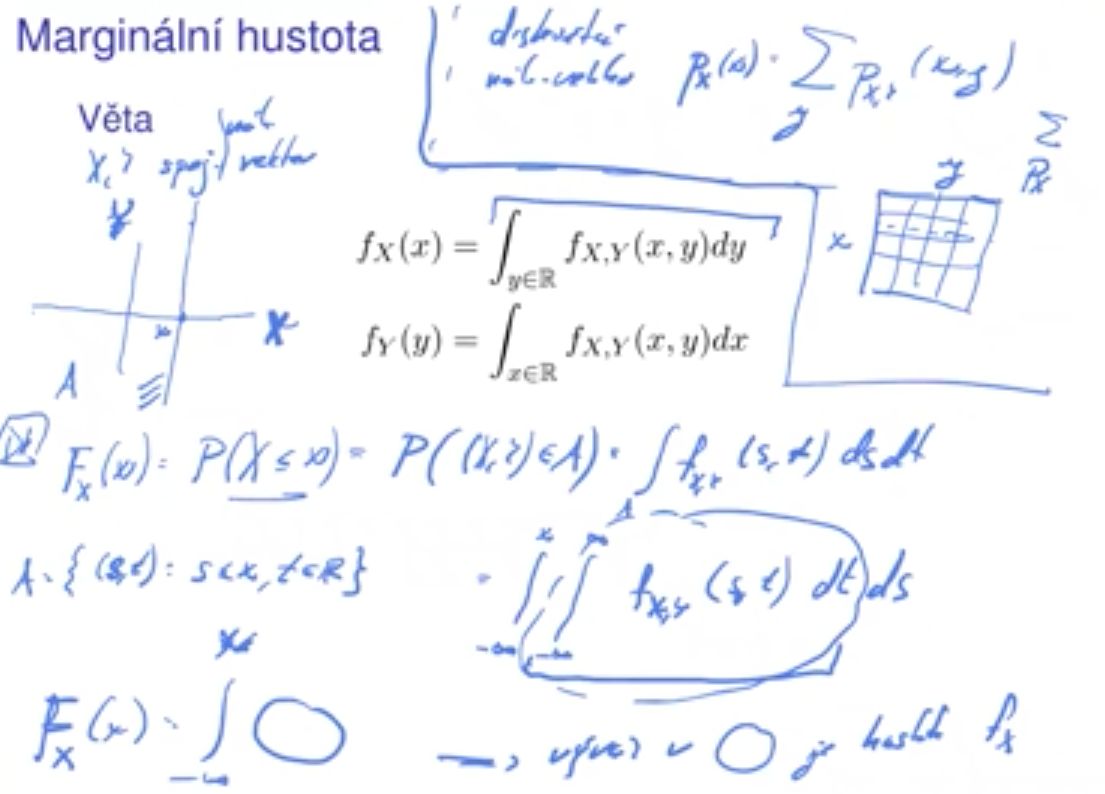 Marginální hustota
diskrétní
náh. vektor p_X(x) = ∑_y p_{X,Y}(x,y)
Věta
X,Y spoj. náh. vektor
∑
y p_X
Y
f_X(x) = ∫_{y∈ℝ} f_{X,Y}(x, y)dy
x
x X
f_Y(y) = ∫_{x∈ℝ} f_{X,Y}(x, y)dx
A
F_X(x) = P(X ≤ x) = P((X,Y) ∈ A) = ∫_A f_{X,Y}(s,t) ds dt
A = {(s,t): s ≤ x, t ∈ ℝ} = ∫_{-∞}^{x} ∫_{-∞}^{∞} f_{X,Y}(s,t) dt ds
F_X(x) = ∫_{-∞}^{x} ◯ → výraz v ◯ je hust. f_X